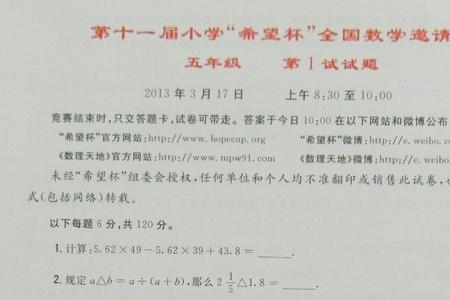 第十一届小学“希望杯”全国数学邀请
五年级 第1试试题
2013年3月17日 上午8:30至10:00
竞赛结束时,只交答题卡,试卷可带走。答案于今日10:00在以下网站和微博公布
“希望杯”官方网站:http://www.hopecup.org “希望杯”微博:http://e.weibo.c
《数理天地》官方网站:http://www.mpw91.com 《数理天地》微博:http://e.weibo.
未经“希望杯”组委会授权,任何单位和个人均不准翻印或销售此试卷,
式(包括网络)转载。
以下每题6分,共120分。
1.计算:5.62×49-5.62×39+43.8=_____.
2.规定a△b=a÷(a+b),那么2 1/5△1.8=_____.